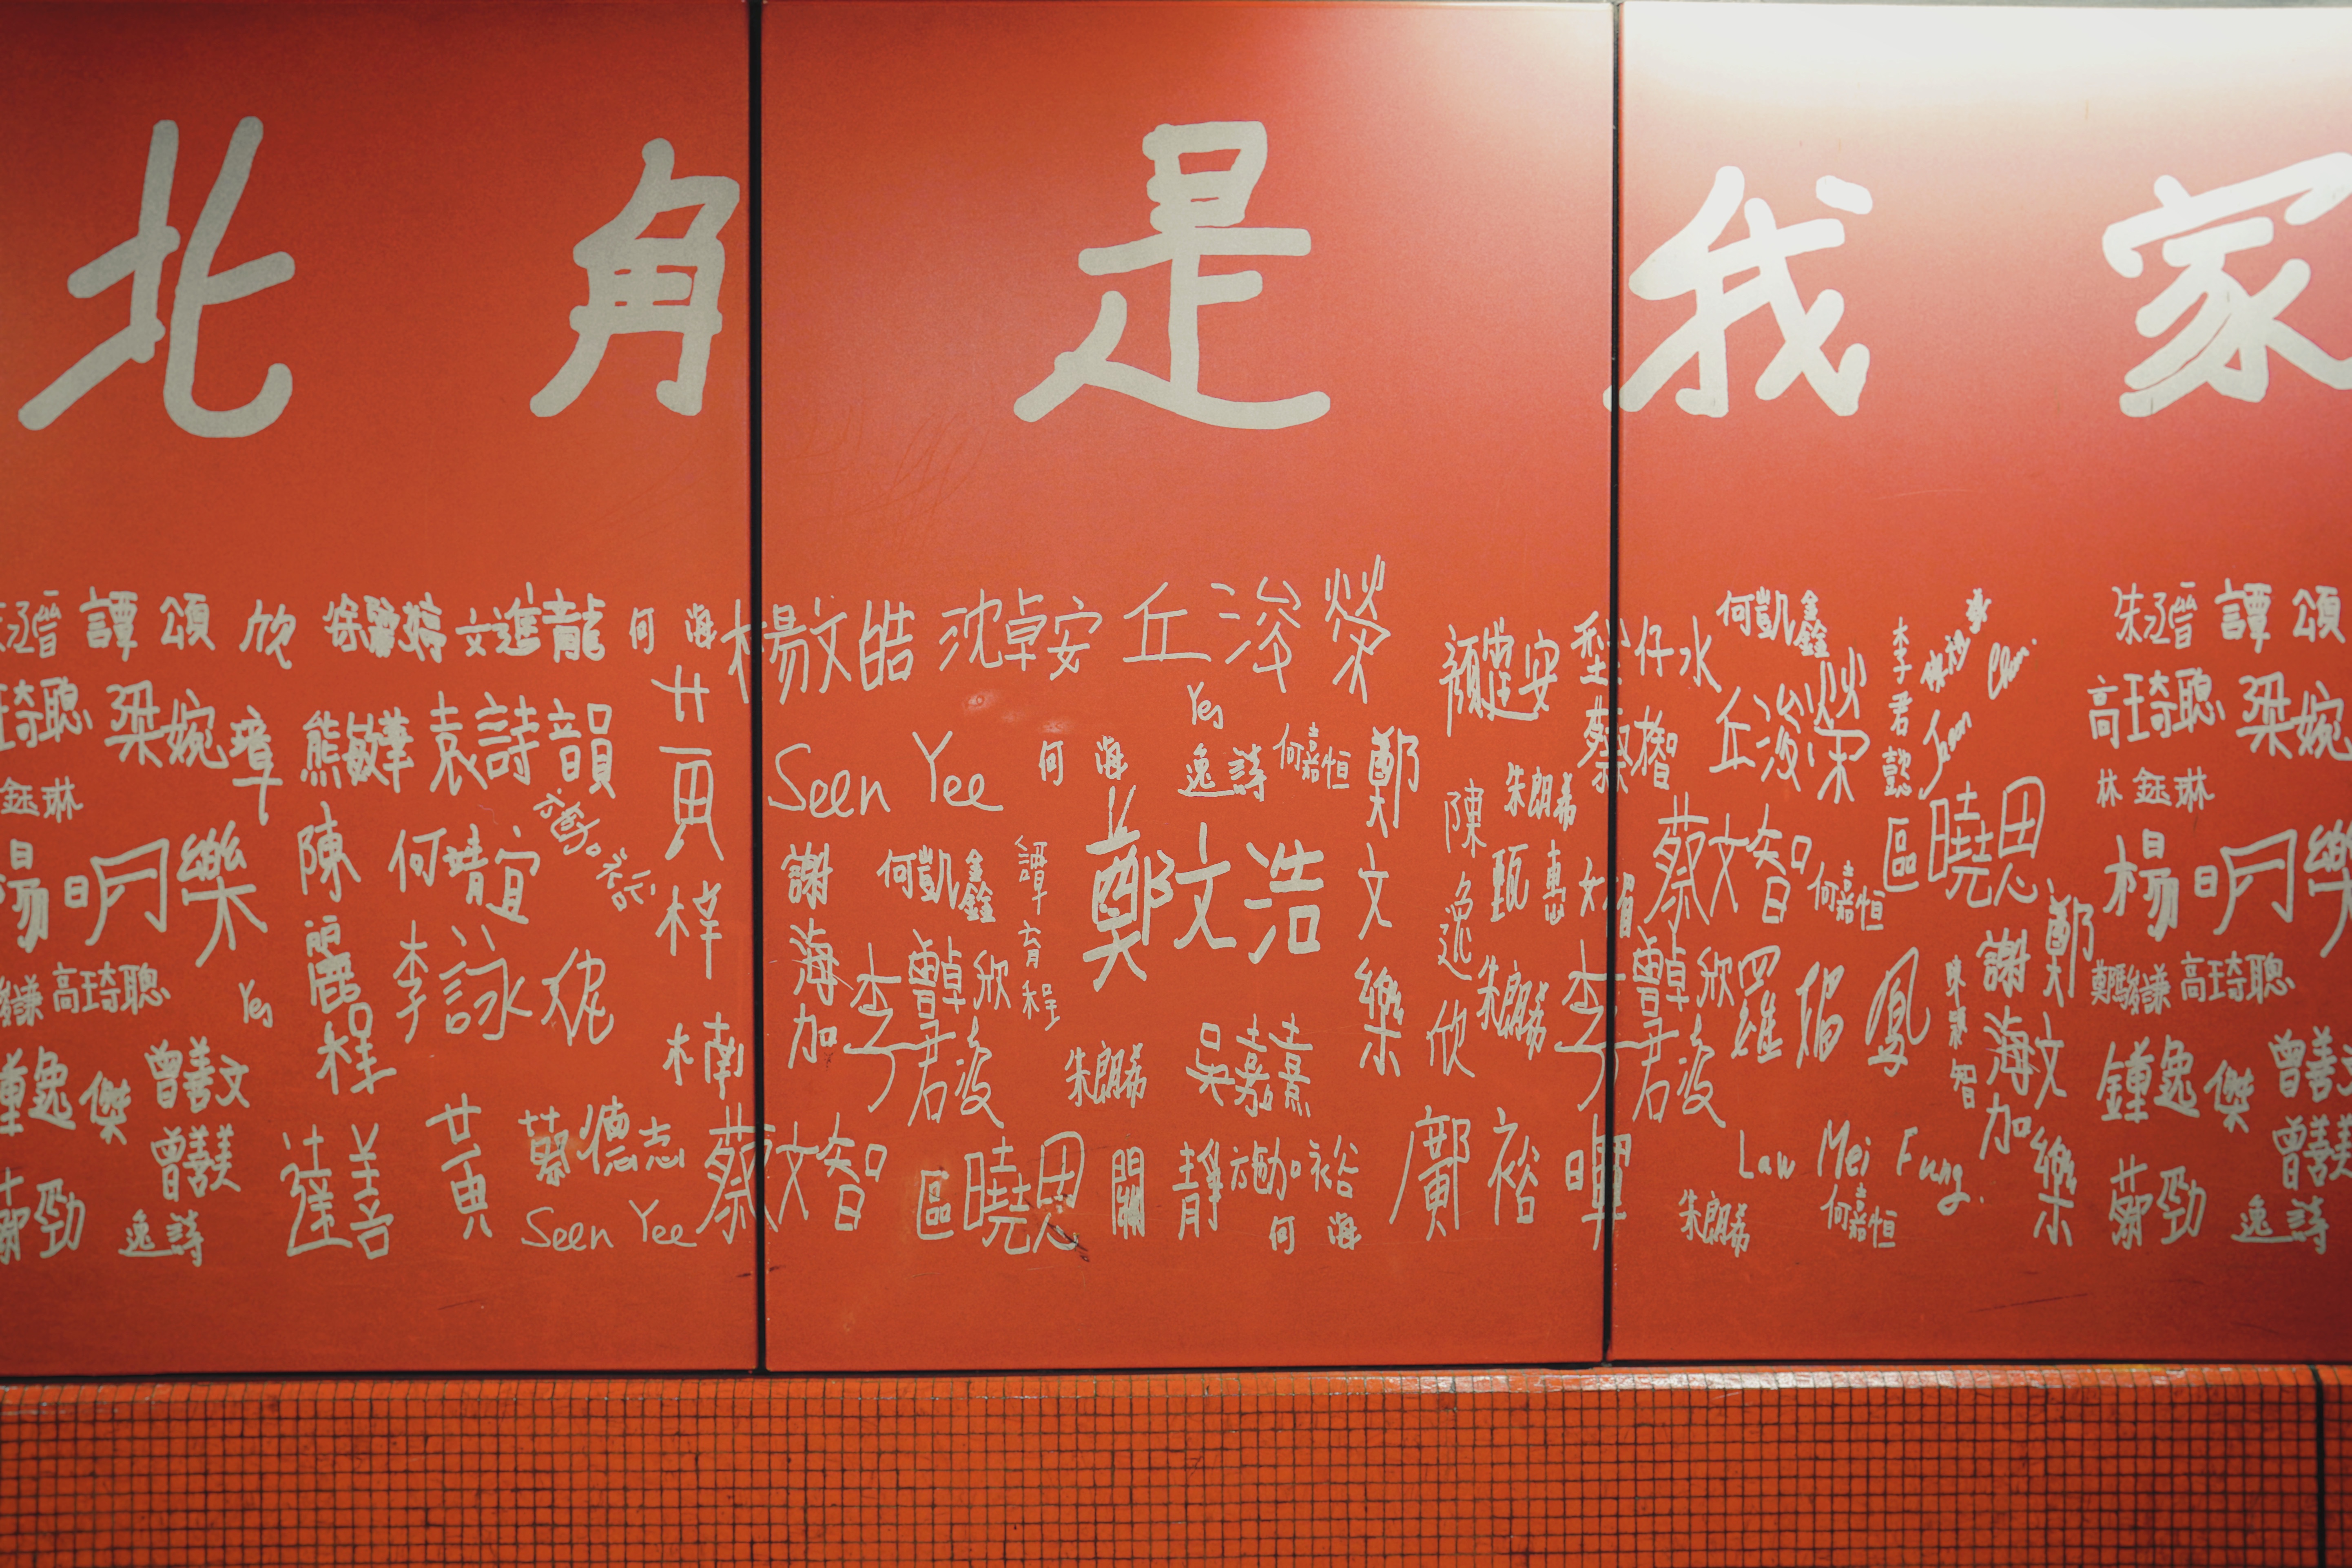 北角是我家
譚頌欣 徐 文進龍 何海 楊文皓 沈卓安 丘浚榮 顏 安 仔水 何凱鑫 李君懿 譚頌
高琦聰 梁婉璋 熊 袁詩韻 黃梓楠 Yee 丘浚榮 Jean Chan. 高琦聰 梁婉
Seen Yee 何海 逸詩 何嘉恒 鄭文樂 陳逸欣 朱朗希 蔡
鈺琳 林鈺琳
楊明樂 陳麗程 何靖宜 謝海加 何凱鑫 譚育程 鄭文浩 甄惠 蔡文智 何嘉恒 區曉恩 楊明樂
謙 高琦聰 Yee 李詠 李 欣 朱朗希 李 欣 羅娟鳳 陳 智 謝海加 鄭文樂 鄭駿謙 高琦聰
鍾逸傑 曾善文 君凌 朱朗希 吳嘉熹 君凌 鍾逸傑 曾善文
曾善美 達善 黃 蔡德志 蔡文智 區曉恩 關靜 裕 鄺裕 Law Mei Fung. 曾善美
蔡勁 逸詩 Seen Yee 何海 朱朗希 何嘉恒 蔡勁 逸詩